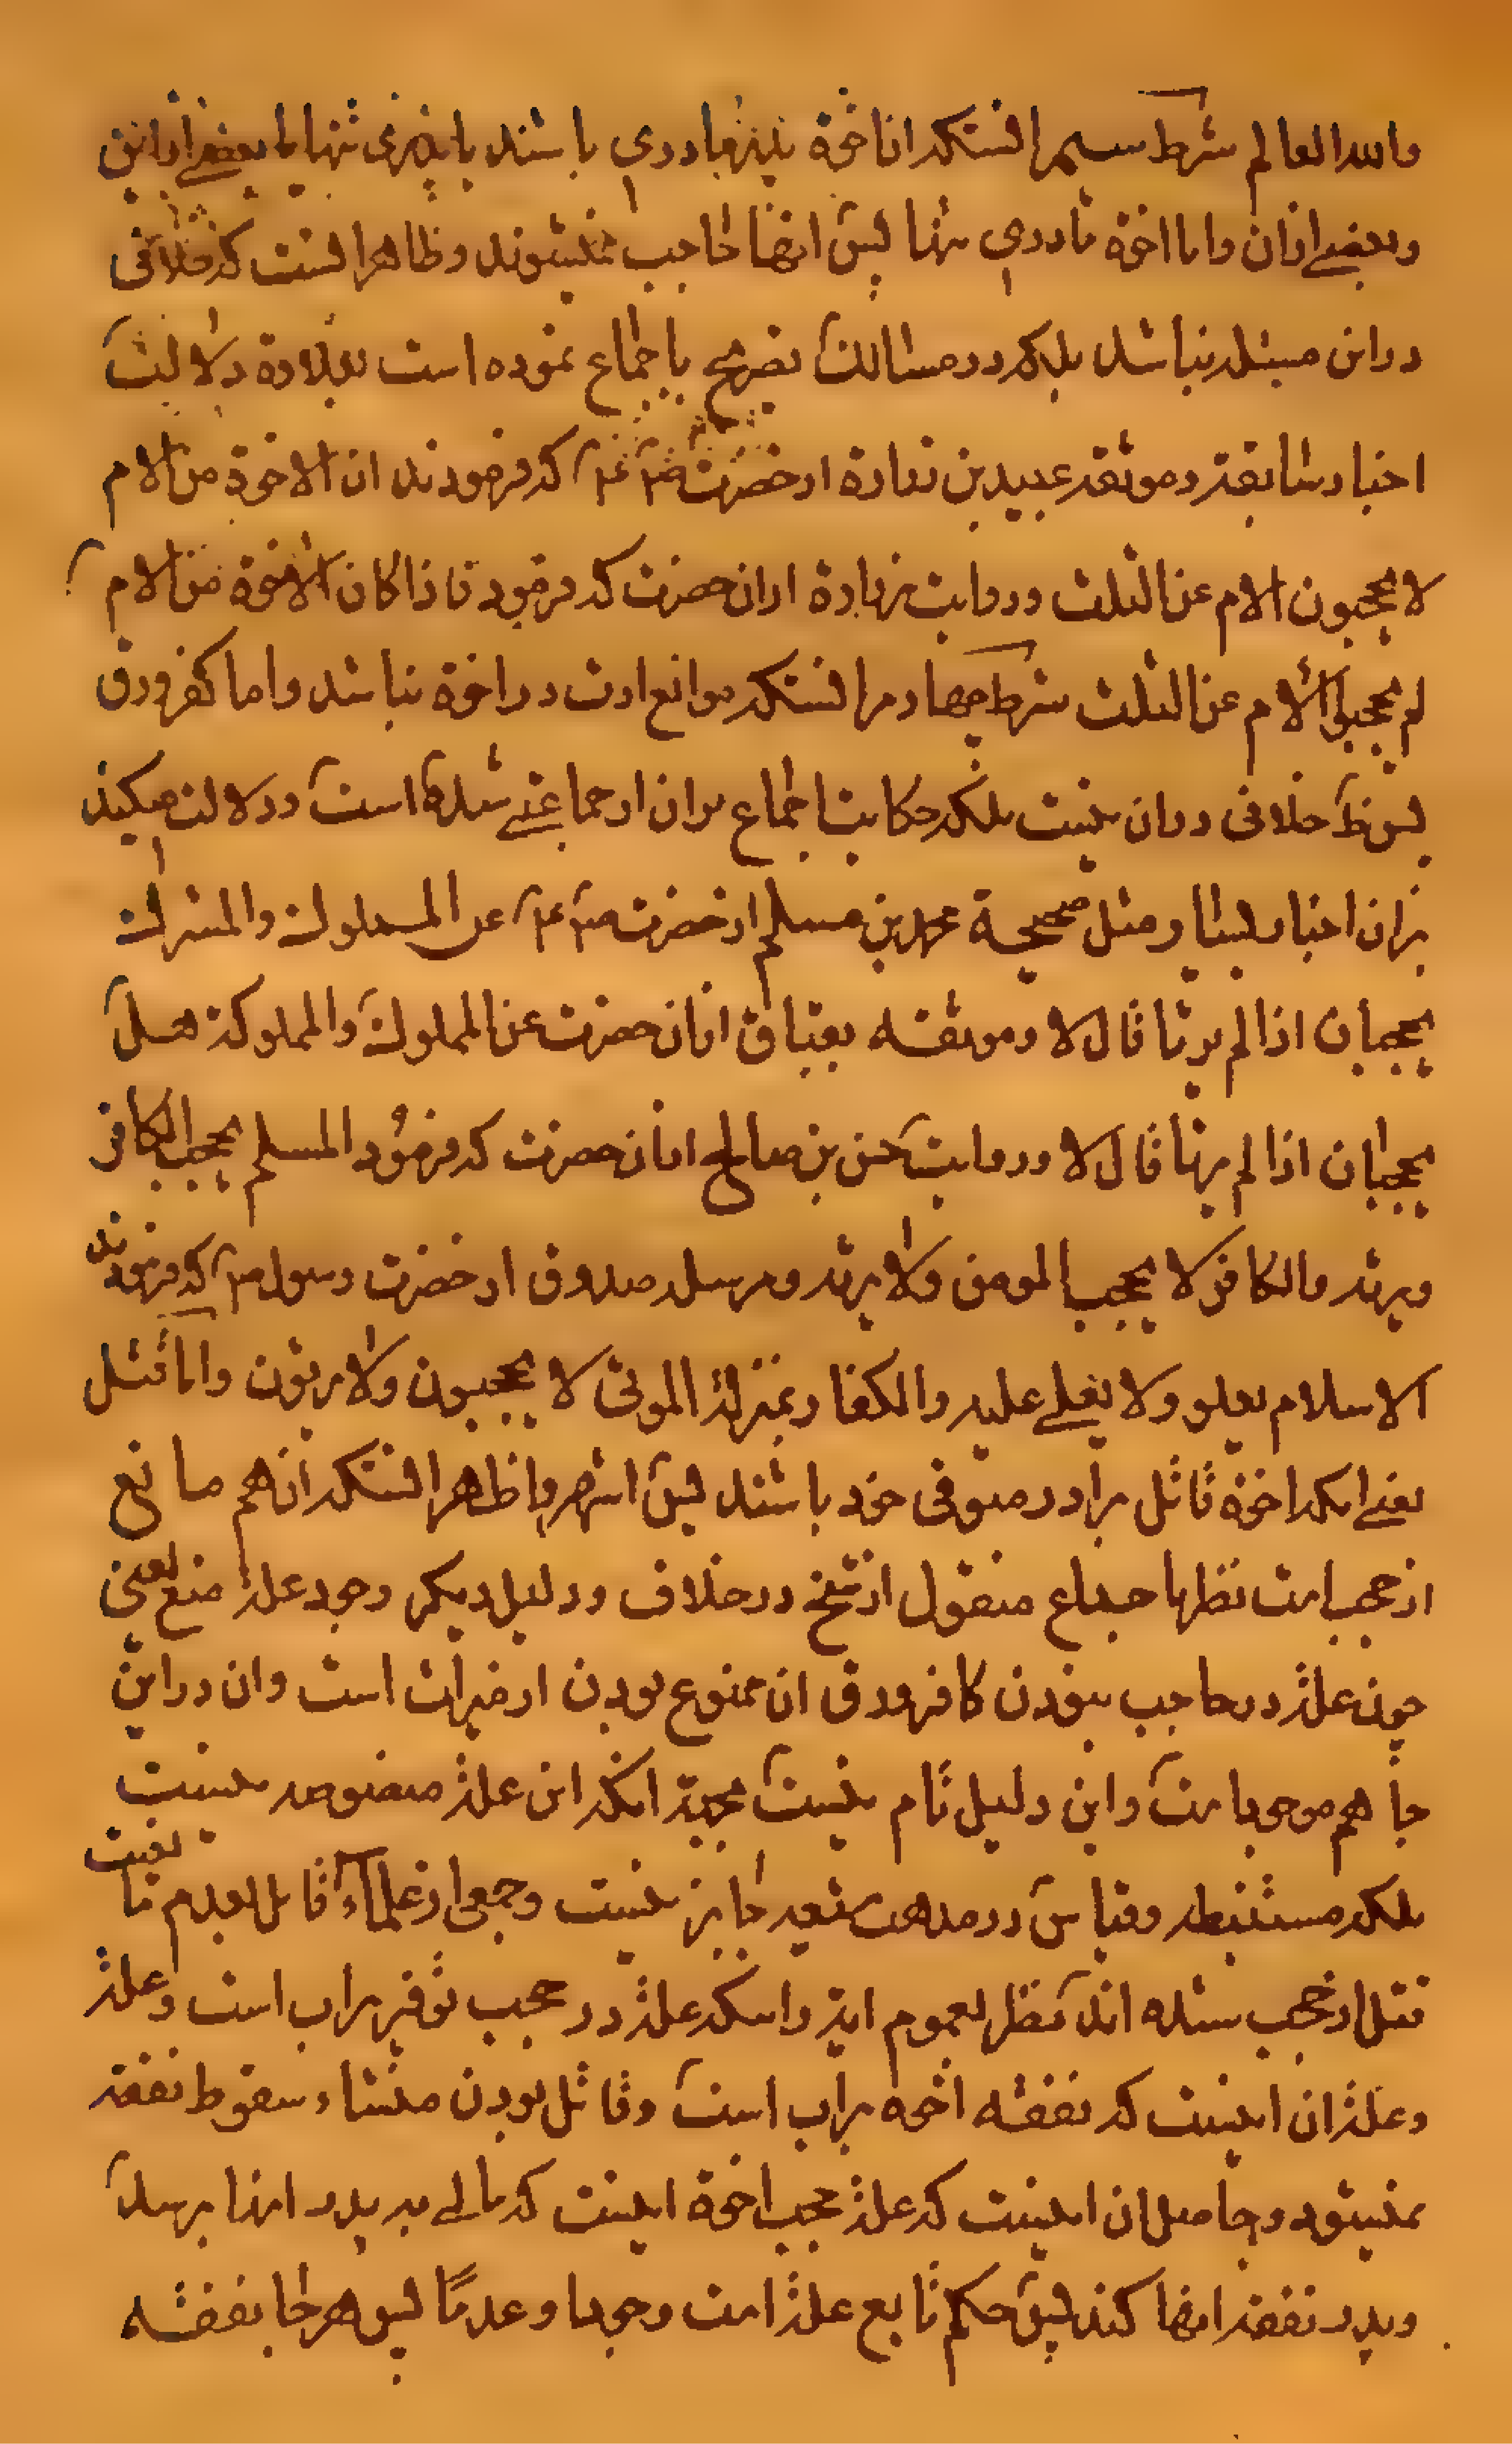 والله العالم شرط سیم انستکه ان اخوة پدر و مادری باشند یا پدری تنها یا بعضے از این
وبعضے ازان واما اخوة مادری تنها پس انها حاجب نمیشوند وظاهر انست که خلافی
در این مسئله نباشد بلکه در مسالک تصریح باجماع نموده است بعلاوه دلالت
اخبار سابقه و موثقه عبید بن زرارة از حضرت ص ع که فرمودند ان الاخوة من الام
لا یحجبون الام عن الثلث وروایت زرارة ازان حضرت که فرمود فاذا کان الاخوة من الام
لم یحجبوا الام عن الثلث شرط چهارم انستکه موانع ارث در اخوة نباشد واما کفر ورق
پس ظ خلافی دران نیست بلکه حکایت اجماع بران از جماعتے شده است ودلالت میکند
بران اخبار بسیار مثل صحیحة محمد بن مسلم از حضرت ص ع عن المملوک والمشرک
یحجبان اذا لم یرثا قال لا وموثقه بقباق ازان حضرت عن المملوک والمملوکة هل
یحجبان اذا لم یرثا قال لا وروایت حسن بن صالح ازان حضرت که فرمود المسلم یحجب الکافر
ویرثه والکافر لا یحجب المومن ولا یرثه ومرسله صدوق از حضرت رسول ص که فرمودند
الاسلام یعلو ولا یعلے علیه والکفار بمنزلة الموتی لا یحجبون ولا یرثون واما قتل
یعنے اینکه اخوة قاتل برادر متوفی خود باشند پس اشهر واظهر انستکه ان هم مانع
از حجب است نظر باجماع منقول از شیخ در خلاف ودلیل دیگر وجود علة منع یعنی
چون علة در حاجب نبودن کافر ورق ان ممنوع بودن از میراث است وان در این
جا هم موجود است واین دلیل تام نیست بجهة انکه این علة منصوصه نیست
بلکه مستنبطه وقیاس در مذهب شیعه جایز نیست وجمعی از علماء قائل بعدم مانعیت
قتل از حجب شده اند نظر بعموم ایه واینکه علة در حجب توفیر براب است وعلة
وعلة ان اینست که نفقه اخوه براب است وقاتل بودن منشاء سقوط نفقه
نمیشود وحاصل ان اینست که علة حجب اخوة اینست که مالے به پدر اینها برسد
وپدر نفقه انها کند پس حکم تابع علة است وجودا وعدمًا پس هر جا نفقه